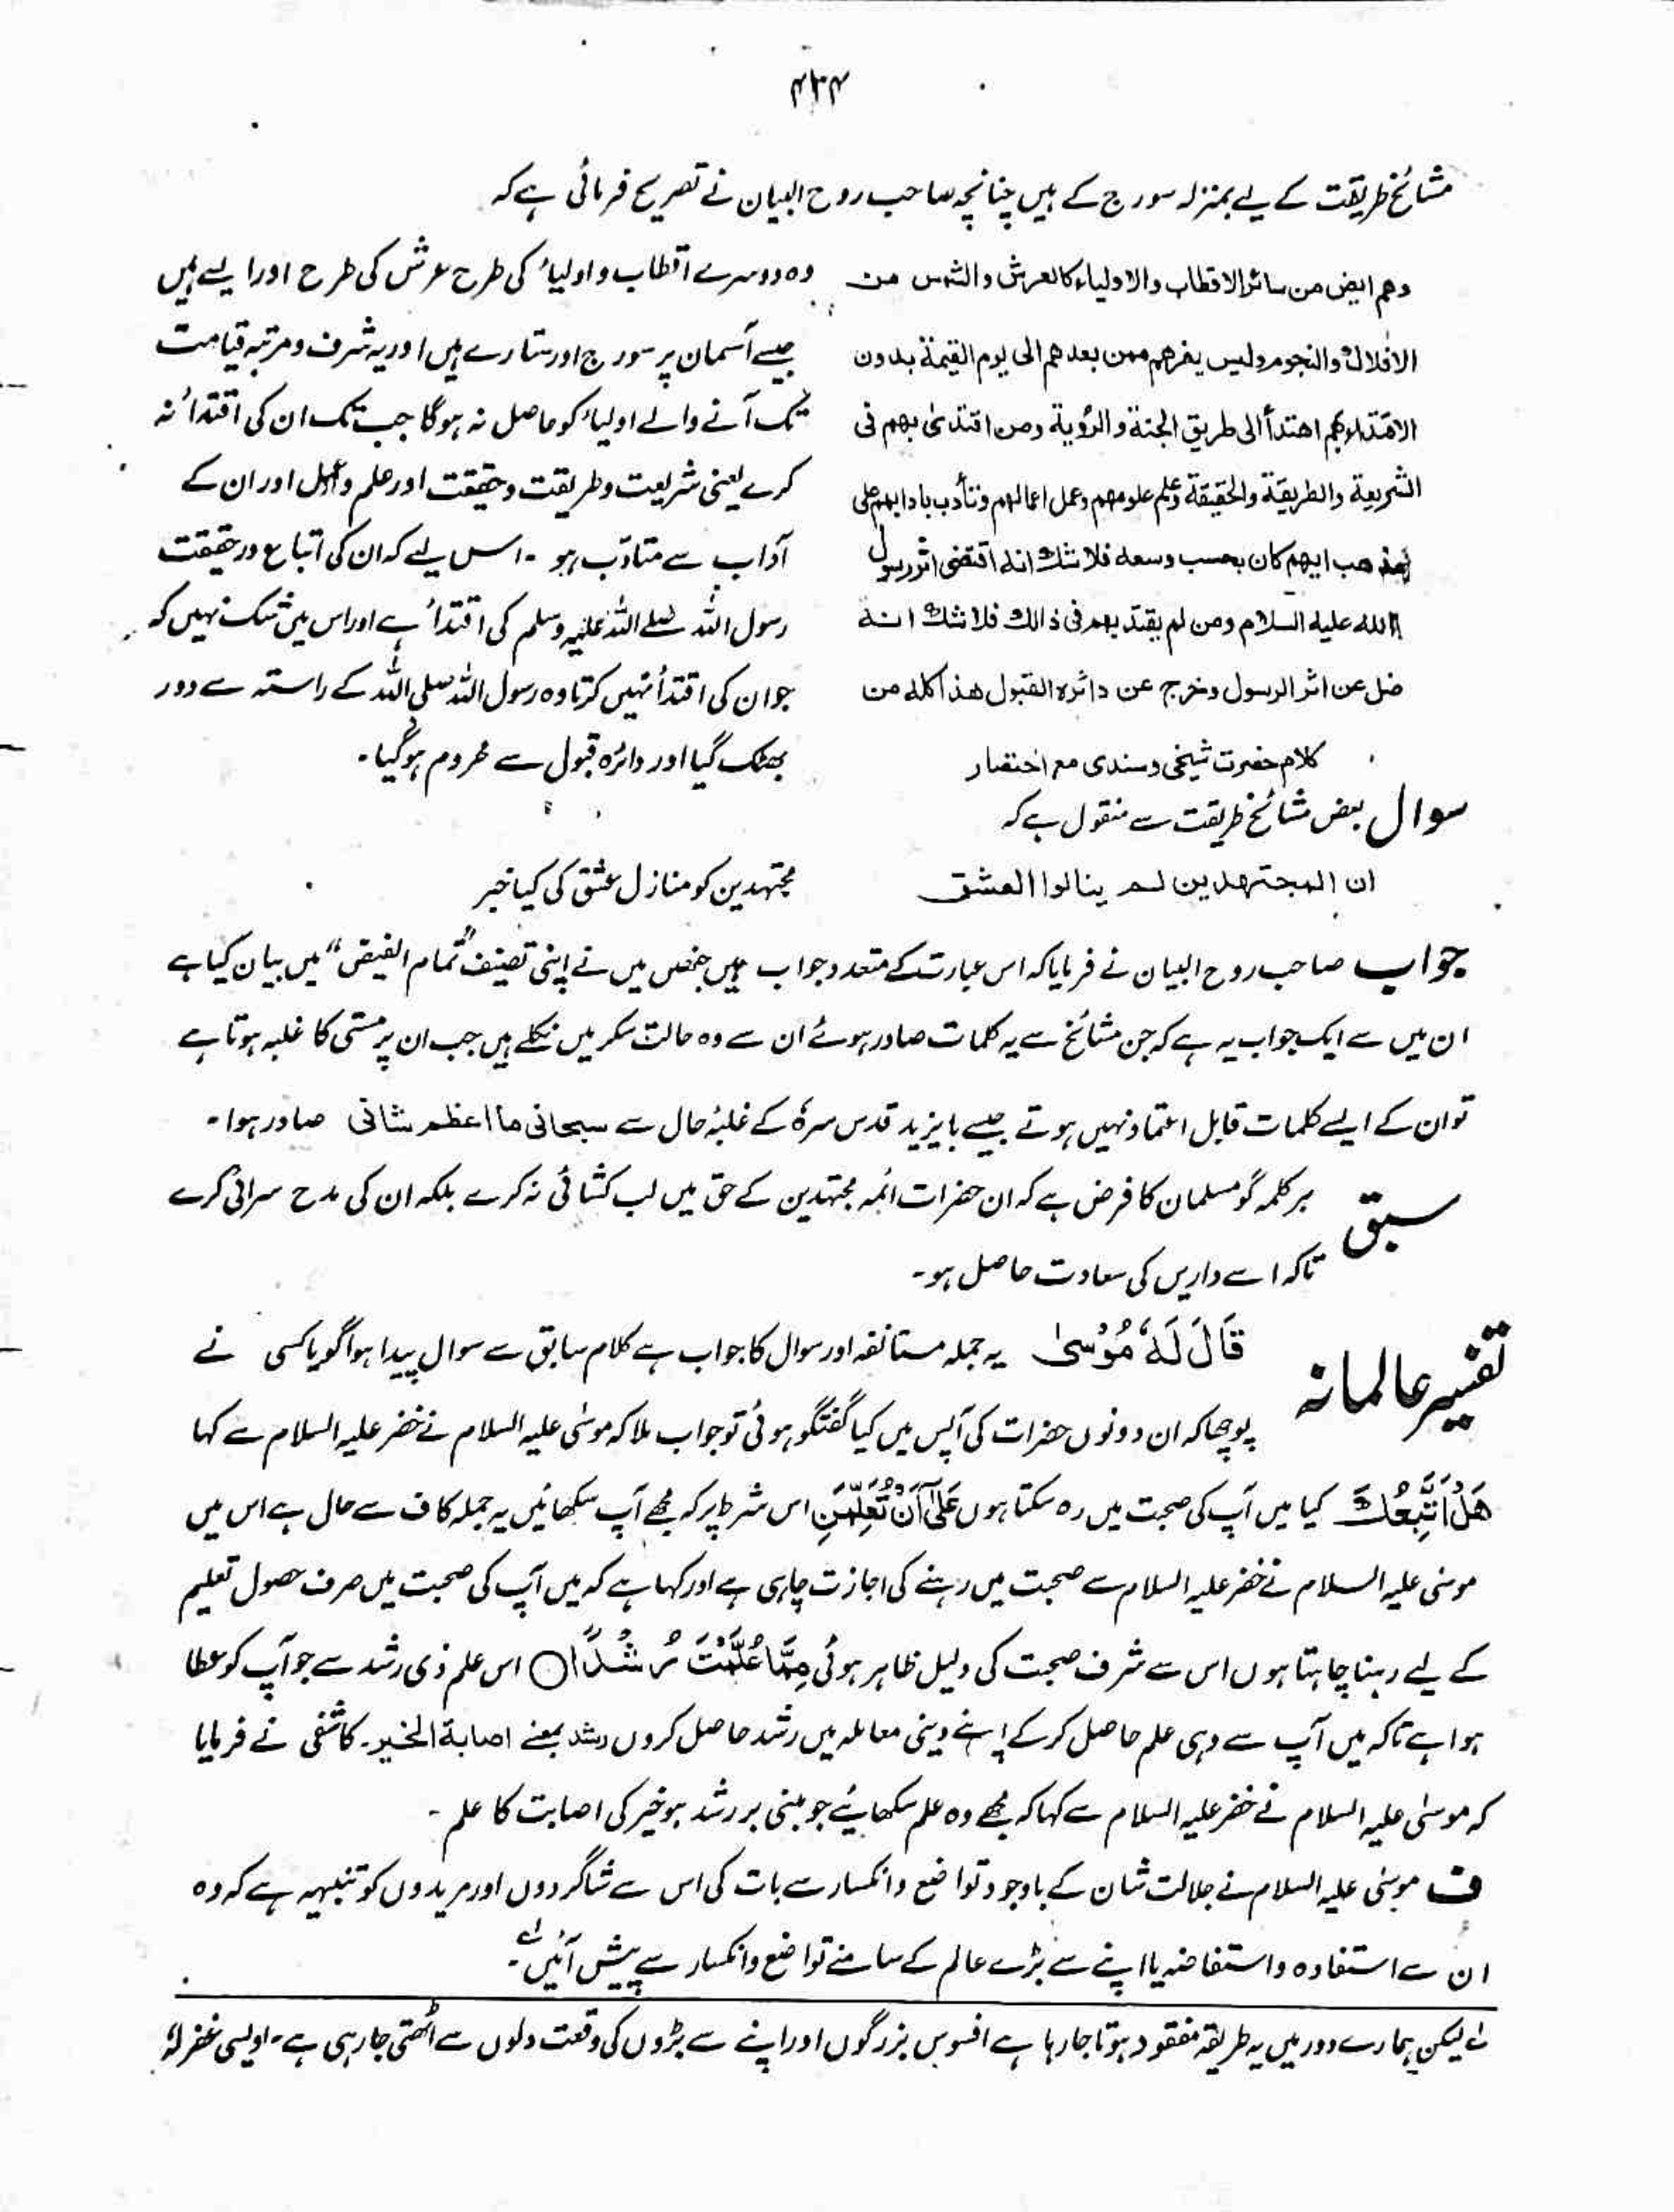 ۴۲۴
مشائخ طریقت کے لیے بمنزلہ سورج کے ہیں چنانچہ صاحب روح البیان نے تصریح فرمائی ہے کہ
وهم ایض من سائر الاقطاب والاولیاء کالعرش والشمس من
الافلاك والنجوم ولیس یغرهم ممن بعدهم الی یوم القیمة بدون
الاقتداء بهم اهتدأ الی طریق الجنة والرؤیة ومن اقتدیٰ بهم فی
الشریعة والطریقة والحقیقة وعلم علومهم وعمل اعمالهم وتأدب بادابهم علی
مذهب ایهم کان بحسب وسعه فلا شك انه اقتضی اثر رسول
الله علیه السلام ومن لم یقتد بهم فی ذالك فلا شك انه
ضل عن اثر الرسول وخرج عن دائرہ القبول هذا کله من
کلام حضرت شیخی وسندی مع اختصار
وہ دوسرے اقطاب و اولیاء کی طرح عرش کی طرح اور ایسے ہیں
جیسے آسمان پر سورج اور ستارے ہیں اور یہ شرف و مرتبہ قیامت
تک آنے والے اولیاء کو حاصل نہ ہوگا جب تک ان کی اقتداء نہ
کرے یعنی شریعت و طریقت و حقیقت اور علم و عمل اور ان کے
آداب سے متادّب ہو ۔ اس لیے کہ ان کی اتباع درحقیقت
رسول اللہ صلے اللہ علیہ وسلم کی اقتدأ ہے اور اس میں شک نہیں کہ
جو ان کی اقتدأ نہیں کرتا وہ رسول اللہ صلی اللہ کے راستہ سے دور
بھٹک گیا اور دائرہ قبول سے محروم ہوگیا ۔
سوال بعض مشائخ طریقت سے منقول ہے کہ
ان المجتهدین لم ینالوا العشق
مجتہدین کو منازل عشق کی کیا خبر
جواب صاحب روح البیان نے فرمایا کہ اس عبارت کے متعدد جواب ہیں جنھیں میں نے اپنی تصنیف "تمام الفیض" میں بیان کیا ہے
ان میں سے ایک جواب یہ ہے کہ جن مشائخ سے یہ کلمات صادر ہوئے ان سے وہ حالت سکر میں نکلے ہیں جب ان پر مستی کا غلبہ ہوتا ہے
تو ان کے ایسے کلمات قابل اعتماد نہیں ہوتے جیسے بایزید قدس سرہٗ کے غلبۂ حال سے سبحانی ما اعظم شانی صادر ہوا ۔
سبق ہر کلمہ گو مسلمان کا فرض ہے کہ ان حضرات ائمہ مجتہدین کے حق میں لب کشائی نہ کرے بلکہ ان کی مدح سرائی کرے
تاکہ اسے دارین کی سعادت حاصل ہو ۔
تفسیر عالمانہ قَالَ لَهٗ مُوْسٰی یہ جملہ مستانفہ اور سوال کا جواب ہے کلام سابق سے سوال پیدا ہوا گویا کسی نے
پوچھا کہ ان دونوں حضرات کی آپس میں کیا گفتگو ہوئی تو جواب ملا کہ موسٰی علیہ السلام نے خضر علیہ السلام سے کہا
هَلْ اَتَّبِعُكَ کیا میں آپ کی صحبت میں رہ سکتا ہوں عَلٰٓی اَنْ تُعَلِّمَنِ اس شرط پر کہ مجھے آپ سکھائیں یہ جملہ کاف سے حال ہے اس میں
موسٰی علیہ السلام نے خضر علیہ السلام سے صحبت میں رہنے کی اجازت چاہی ہے اور کہا ہے کہ میں آپ کی صحبت میں صرف حصول تعلیم
کے لیے رہنا چاہتا ہوں اس سے شرف صحبت کی دلیل ظاہر ہوئی مِمَّا عُلِّمْتَ رُشْدًا○ اس علم ذی رشد سے جو آپ کو عطا
ہوا ہے تاکہ میں آپ سے وہی علم حاصل کرکے اپنے دینی معاملہ میں رشد حاصل کروں رشد بمعنے اصابة الخیر۔ کاشفی نے فرمایا
کہ موسٰی علیہ السلام نے خضر علیہ السلام سے کہا کہ مجھے وہ علم سکھائیے جو مبنی بر رشد ہو خیر کی اصابت کا علم ۔
ف موسٰی علیہ السلام نے جلالت شان کے باوجود تواضع و انکسار سے بات کی اس سے شاگردوں اور مریدوں کو تنبیہہ ہے کہ وہ
ان سے استفادہ و استفاضہ یا اپنے سے بڑے عالم کے سامنے تواضع و انکسار سے پیش آئیں لے۔
لے لیکن ہمارے دور میں یہ طریقہ مفقود ہوتا جارہا ہے افسوس بزرگوں اور اپنے سے بڑوں کی وقعت دلوں سے اٹھتی جارہی ہے۔ اویسی غفرلہٗ